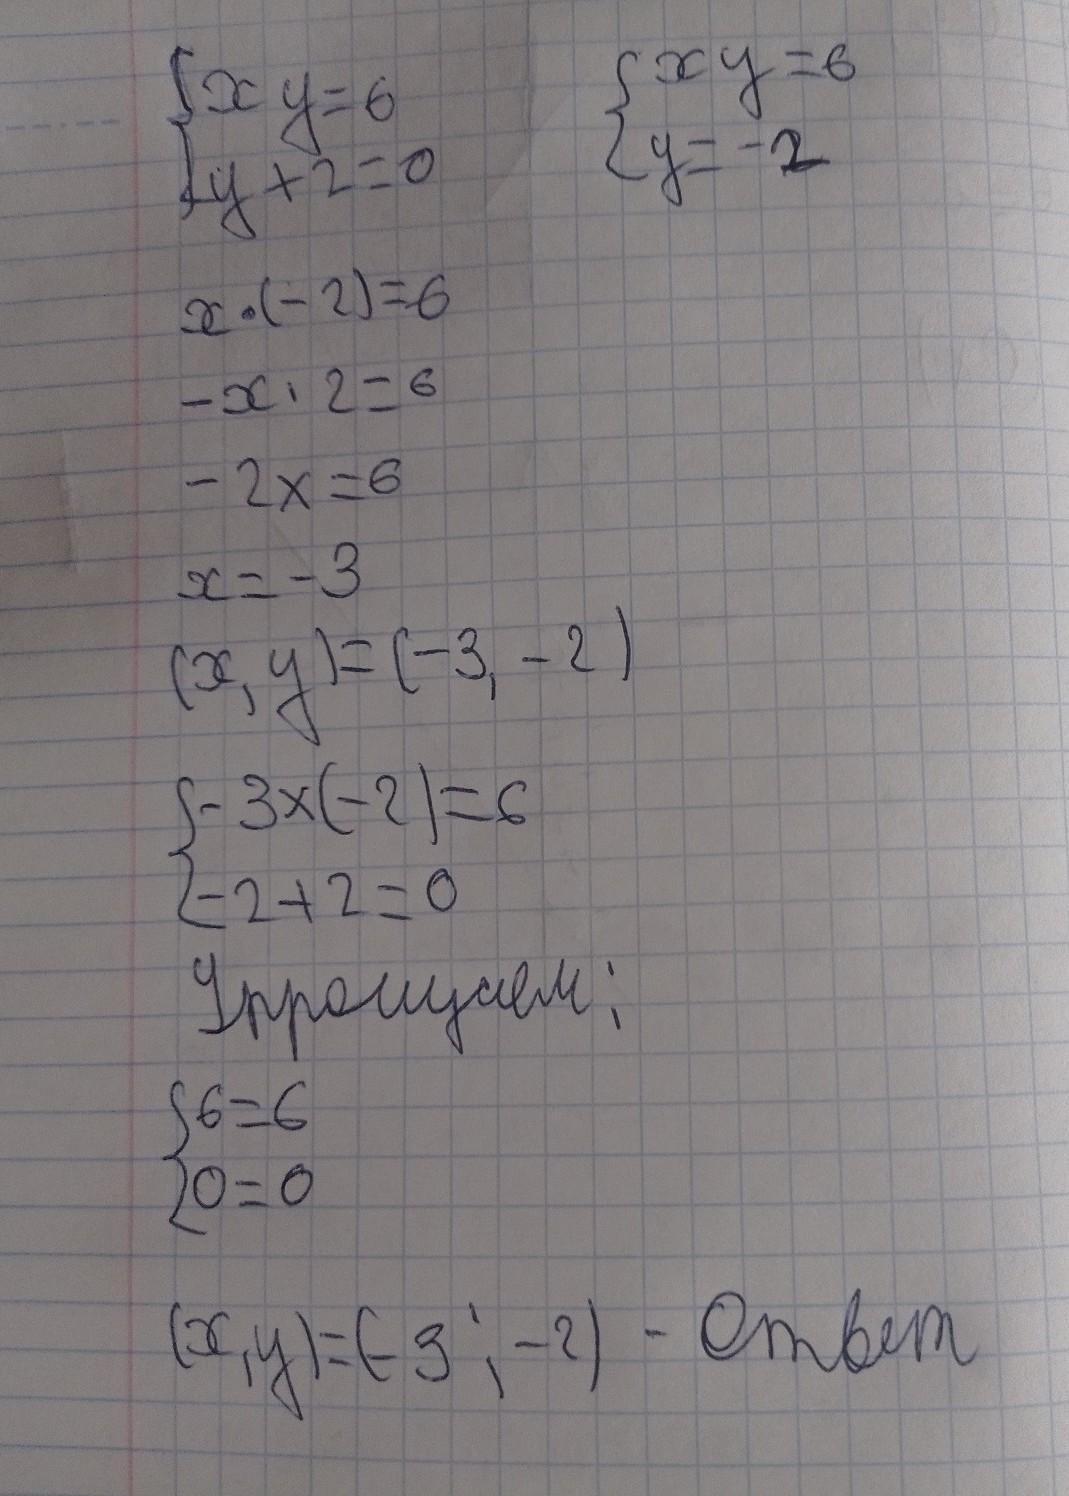 {xy=6
{y+2=0
{xy=6
{y=-2
x·(-2)=6
-x·2=6
-2x=6
x=-3
(x,y)=(-3,-2)
{-3×(-2)=6
{-2+2=0
Упрощаем:
{6=6
{0=0
(x,y)=(-3;-2) - Ответ